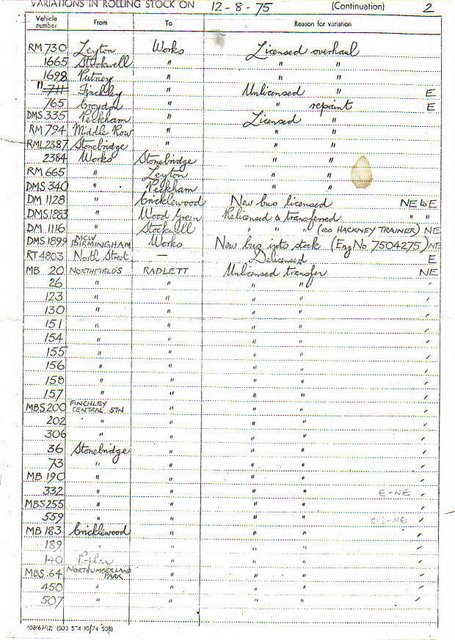 VARIATIONS IN ROLLING STOCK ON 12-8-75 (Continuation) 2
Vehicle number From To Reason for variation
RM 730 Leyton Works Licensed overhaul
1665 Stockwell " " "
1698 Putney " " "
" 711 Finchley " Unlicensed " E
765 Croydon " " repaint E
DMS 335 Peckham " Licensed "
RM 794 Middle Row " " "
RML 2387 Stonebridge " " "
2364 Works Stonebridge " "
RM 665 " Leyton " "
DMS 340 " Peckham " "
DM 1128 " Cricklewood New bus licensed NE to E
DMS 1883 " Wood Green Relicensed & transferred " "
DM 1116 " Stockwell " " (as HACKNEY TRAINER) NE
DMS 1899 MCW BIRMINGHAM Works New bus into stock (Eng No 7504275) NE
RT 4803 North Street — Delicensed E
MB 20 NORTHFIELDS RADLETT Unlicensed transfer NE
26 " " " " "
123 " " " " "
130 " " " " "
151 " " " " "
154 " " " " "
155 " " " " "
156 " " " " "
158 " " " " "
157 " " " " "
MBS 200 FINCHLEY CENTRAL STN " " " "
202 " " " " "
306 " " " " "
36 Stonebridge " " " "
73 " " " " "
MB 190 " " " " "
332 " " " " E-NE "
MBS 255 " " " " "
559 " " " "
MB 183 Cricklewood " " " "
189 " " " " "
140 Poplar " " " "
MBS 64 NORTHUMBERLAND PARK " " " "
450 " " " " "
507 " " " " "